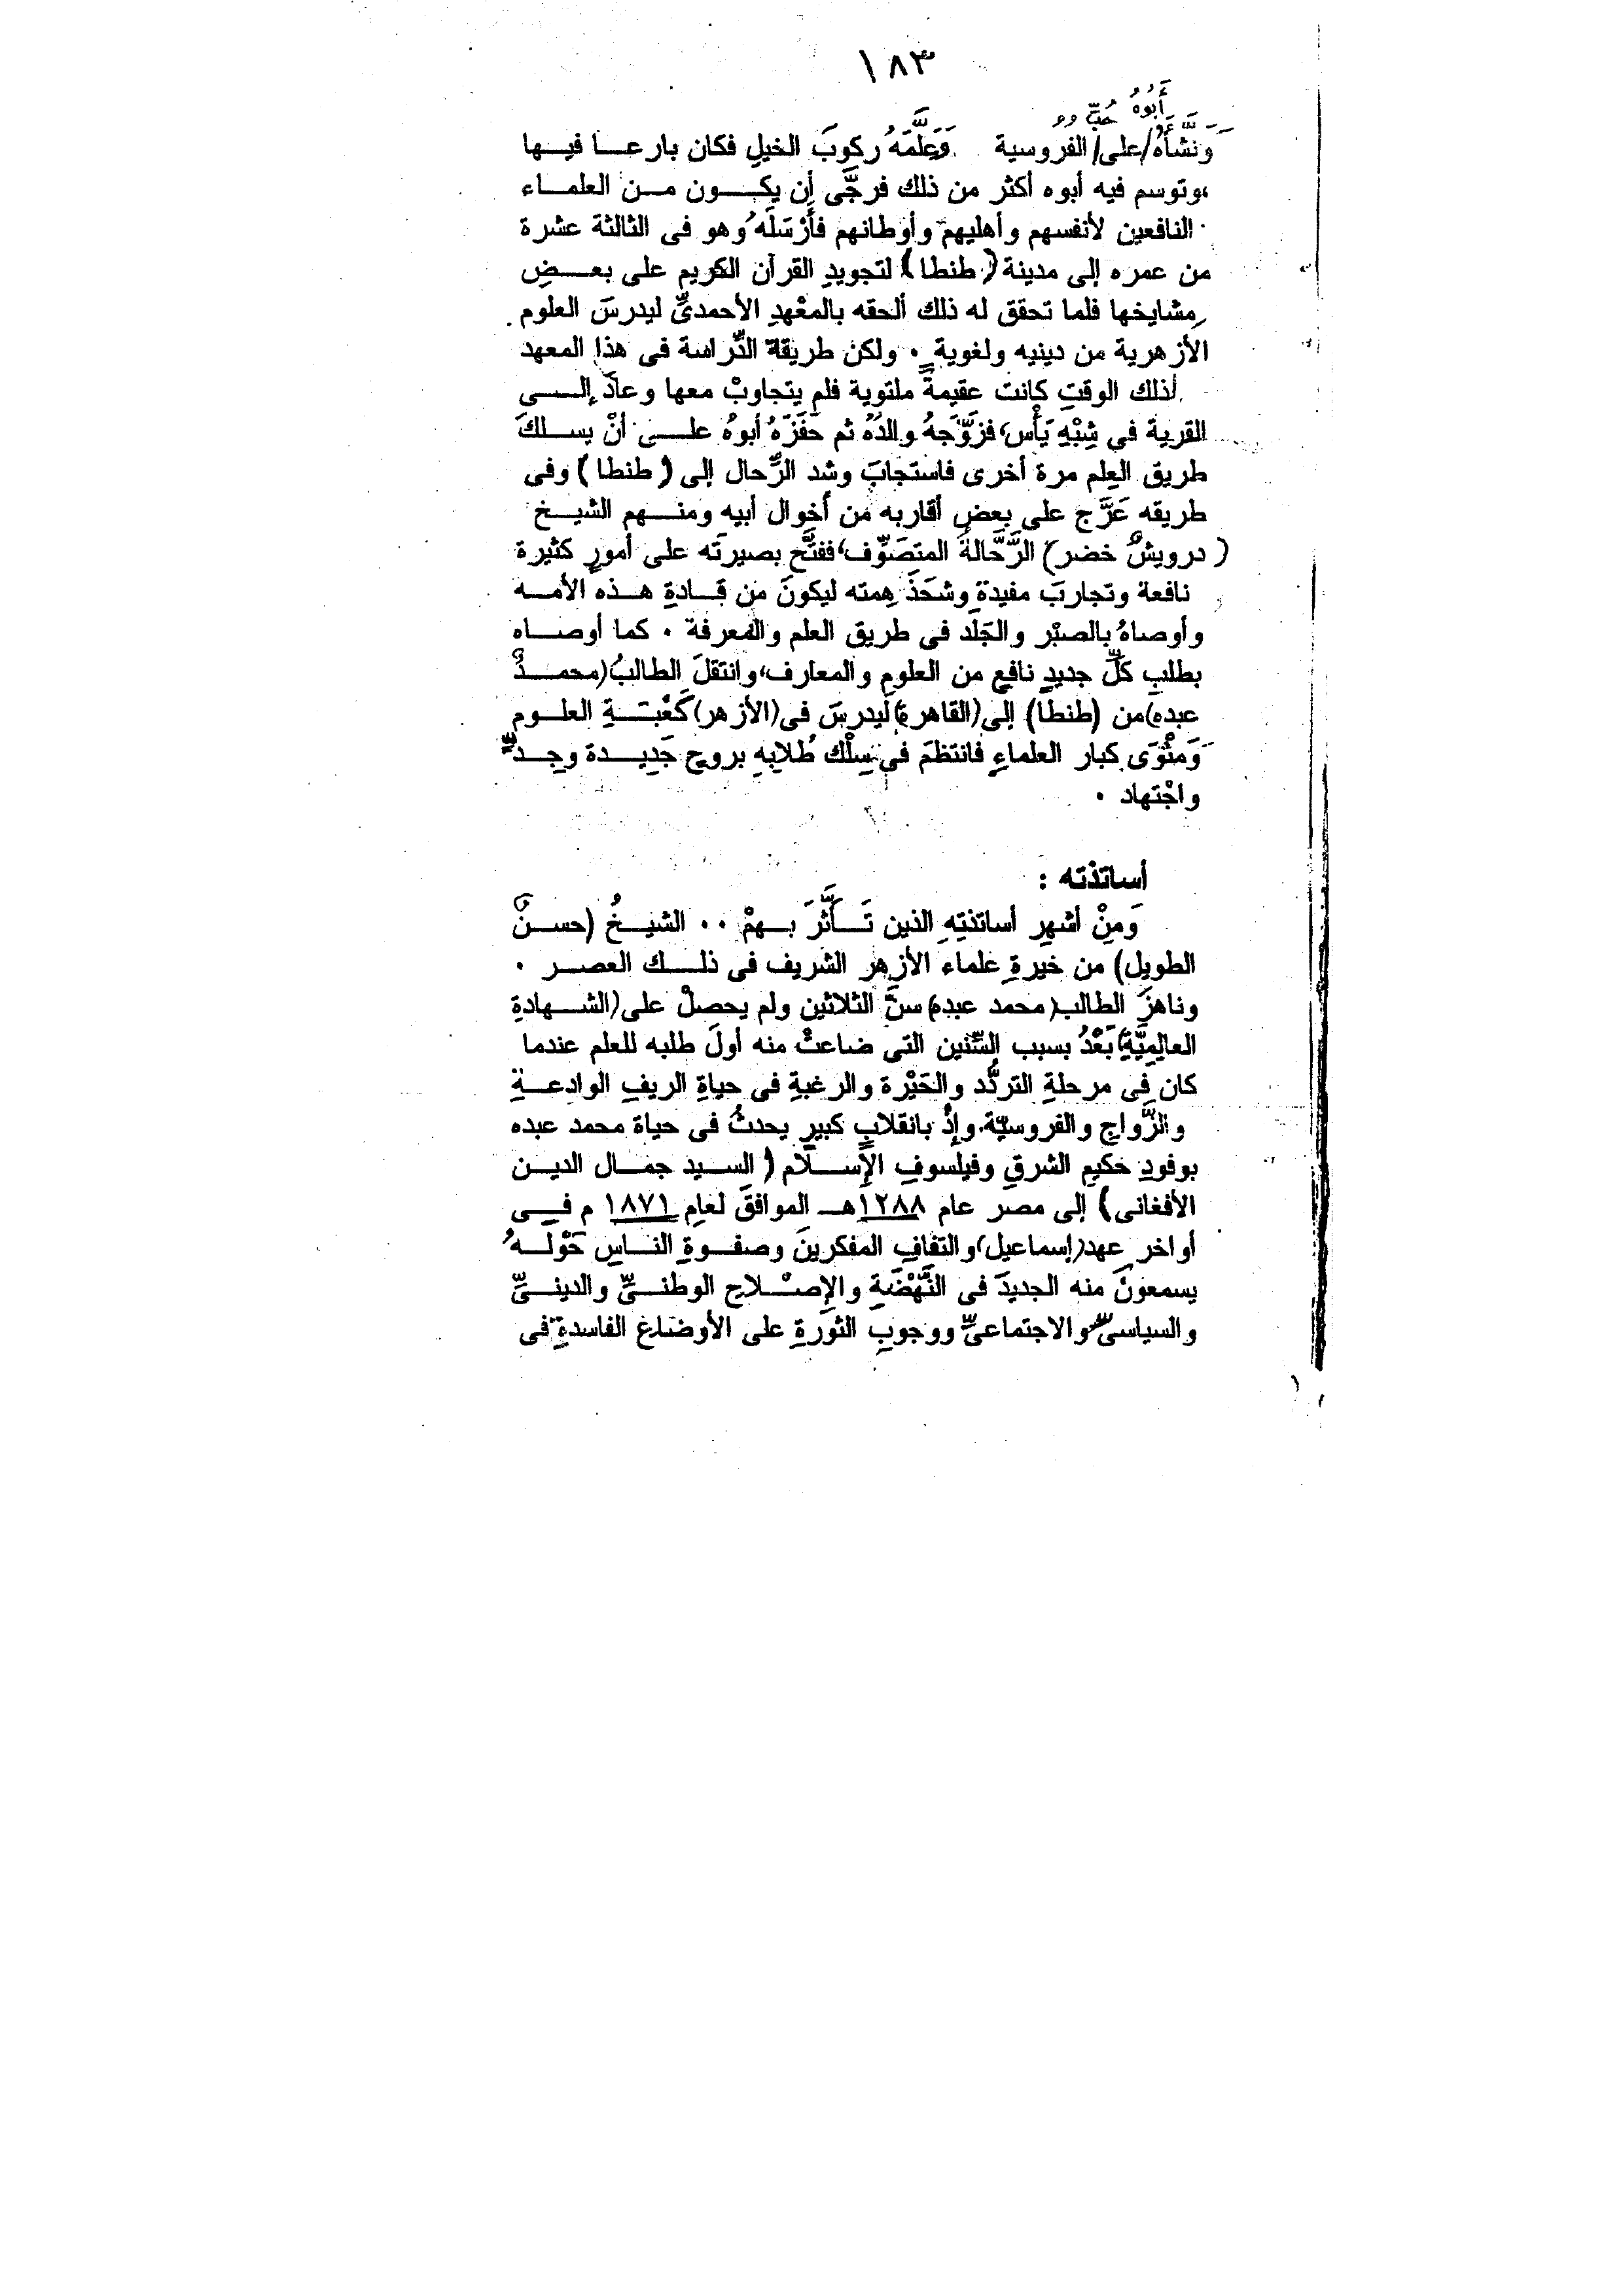 ١٨٣
أَبُوهُ حُبِّ
وَنَشَّأَهُ/على/الفروسية وَعَلَّمَهُ ركوبَ الخيلِ فكان بارعا فيها
،وتوسم فيه أبوه أكثر من ذلك فرجَّى أن يكون من العلماء
النافعين لأنفسهم وأهليهم وأوطانهم فأَرْسَلَهُ وهو فى الثالثة عشرة
من عمره إلى مدينة (طنطا) لتجويدِ القرآن الكريم على بعضِ
مشايخها فلما تحقق له ذلك ألحقه بالمعْهدِ الأحمدىِّ ليدرسَ العلوم
الأزهرية من دينيه ولغويةٍ . ولكن طريقة الدِّراسة فى هذا المعهد
لذلك الوقتِ كانت عقيمةً ملتوية فلم يتجاوبْ معها وعادَ إلى
القرية فى شِبْهِ يَأْس، فزَوَّجَهُ والدُهُ ثم حَفَزَهُ أبوهُ على أنْ يسلكَ
طريق العِلم مرة أخرى فاستجابَ وشد الرِّحال إلى (طنطا) وفى
طريقه عَرَّج على بعضِ أقاربه من أخوال أبيه ومنهم الشيخ
(درويشُ خضر) الرَّحَّالةُ المتصَوِّف، ففتَّح بصيرتَه على أمورٍ كثيرة
نافعة وتجاربَ مفيدةٍ وشحَذَ هِمته ليكونَ من قادةِ هذه الأمه
وأوصاهُ بالصبْر والجَلَد فى طريق العلم والمعرفة . كما أوصاه
بطلبِ كلِّ جديدٍ نافعٍ من العلومِ والمعارف، وانتقلَ الطالبُ (محمدُ
عبده) من (طنطا) إلى (القاهرة) ليدرسَ فى (الأزهر) كَعْبَةِ العلوم
وَمَثْوَى كبار العلماءِ فانتظمَ فى سِلْك طُلابِهِ بروحٍ جَدِيدة وجِدٍّ
واجْتهاد .
أساتذته :
وَمِنْ أشهرِ أساتذتِهِ الذين تَأَثَّرَ بهمْ . . الشيخُ (حسنُ
الطويل) من خيرةِ علماء الأزهر الشريف فى ذلك العصر .
وناهزَ الطالب (محمد عبده) سنَّ الثلاثين ولم يحصلْ على (الشهادةِ
العالِمِيَّةِ) بَعْدُ بسبب السِّنين التى ضاعتْ منه أولَ طلبه للعلم عندما
كان فى مرحلةِ التردُّد والحَيْرة والرغبةِ فى حياةِ الريفِ الوادعةِ
والزَّواجِ والفروسيّة. وإذْ بانقلابٍ كبيرٍ يحدثُ فى حياة محمد عبده
بوفودِ حكيمِ الشرقِ وفيلسوفِ الإسلام (السيد جمال الدين
الأفغانى) إلى مصر عام ١٢٨٨هـ الموافقَ لعامِ ١٨٧١ م فى
أواخرِ عهد (إسماعيل) والتفافِ المفكرينَ وصفوةِ الناسِ حَوْلَهُ
يسمعونَ منه الجديدَ فى النَّهْضَةِ والإِصْلاحِ الوطنىِّ والدينىِّ
والسياسىِّ والاجتماعىِّ ووجوبِ الثورةِ على الأوضاع الفاسدةِ فى